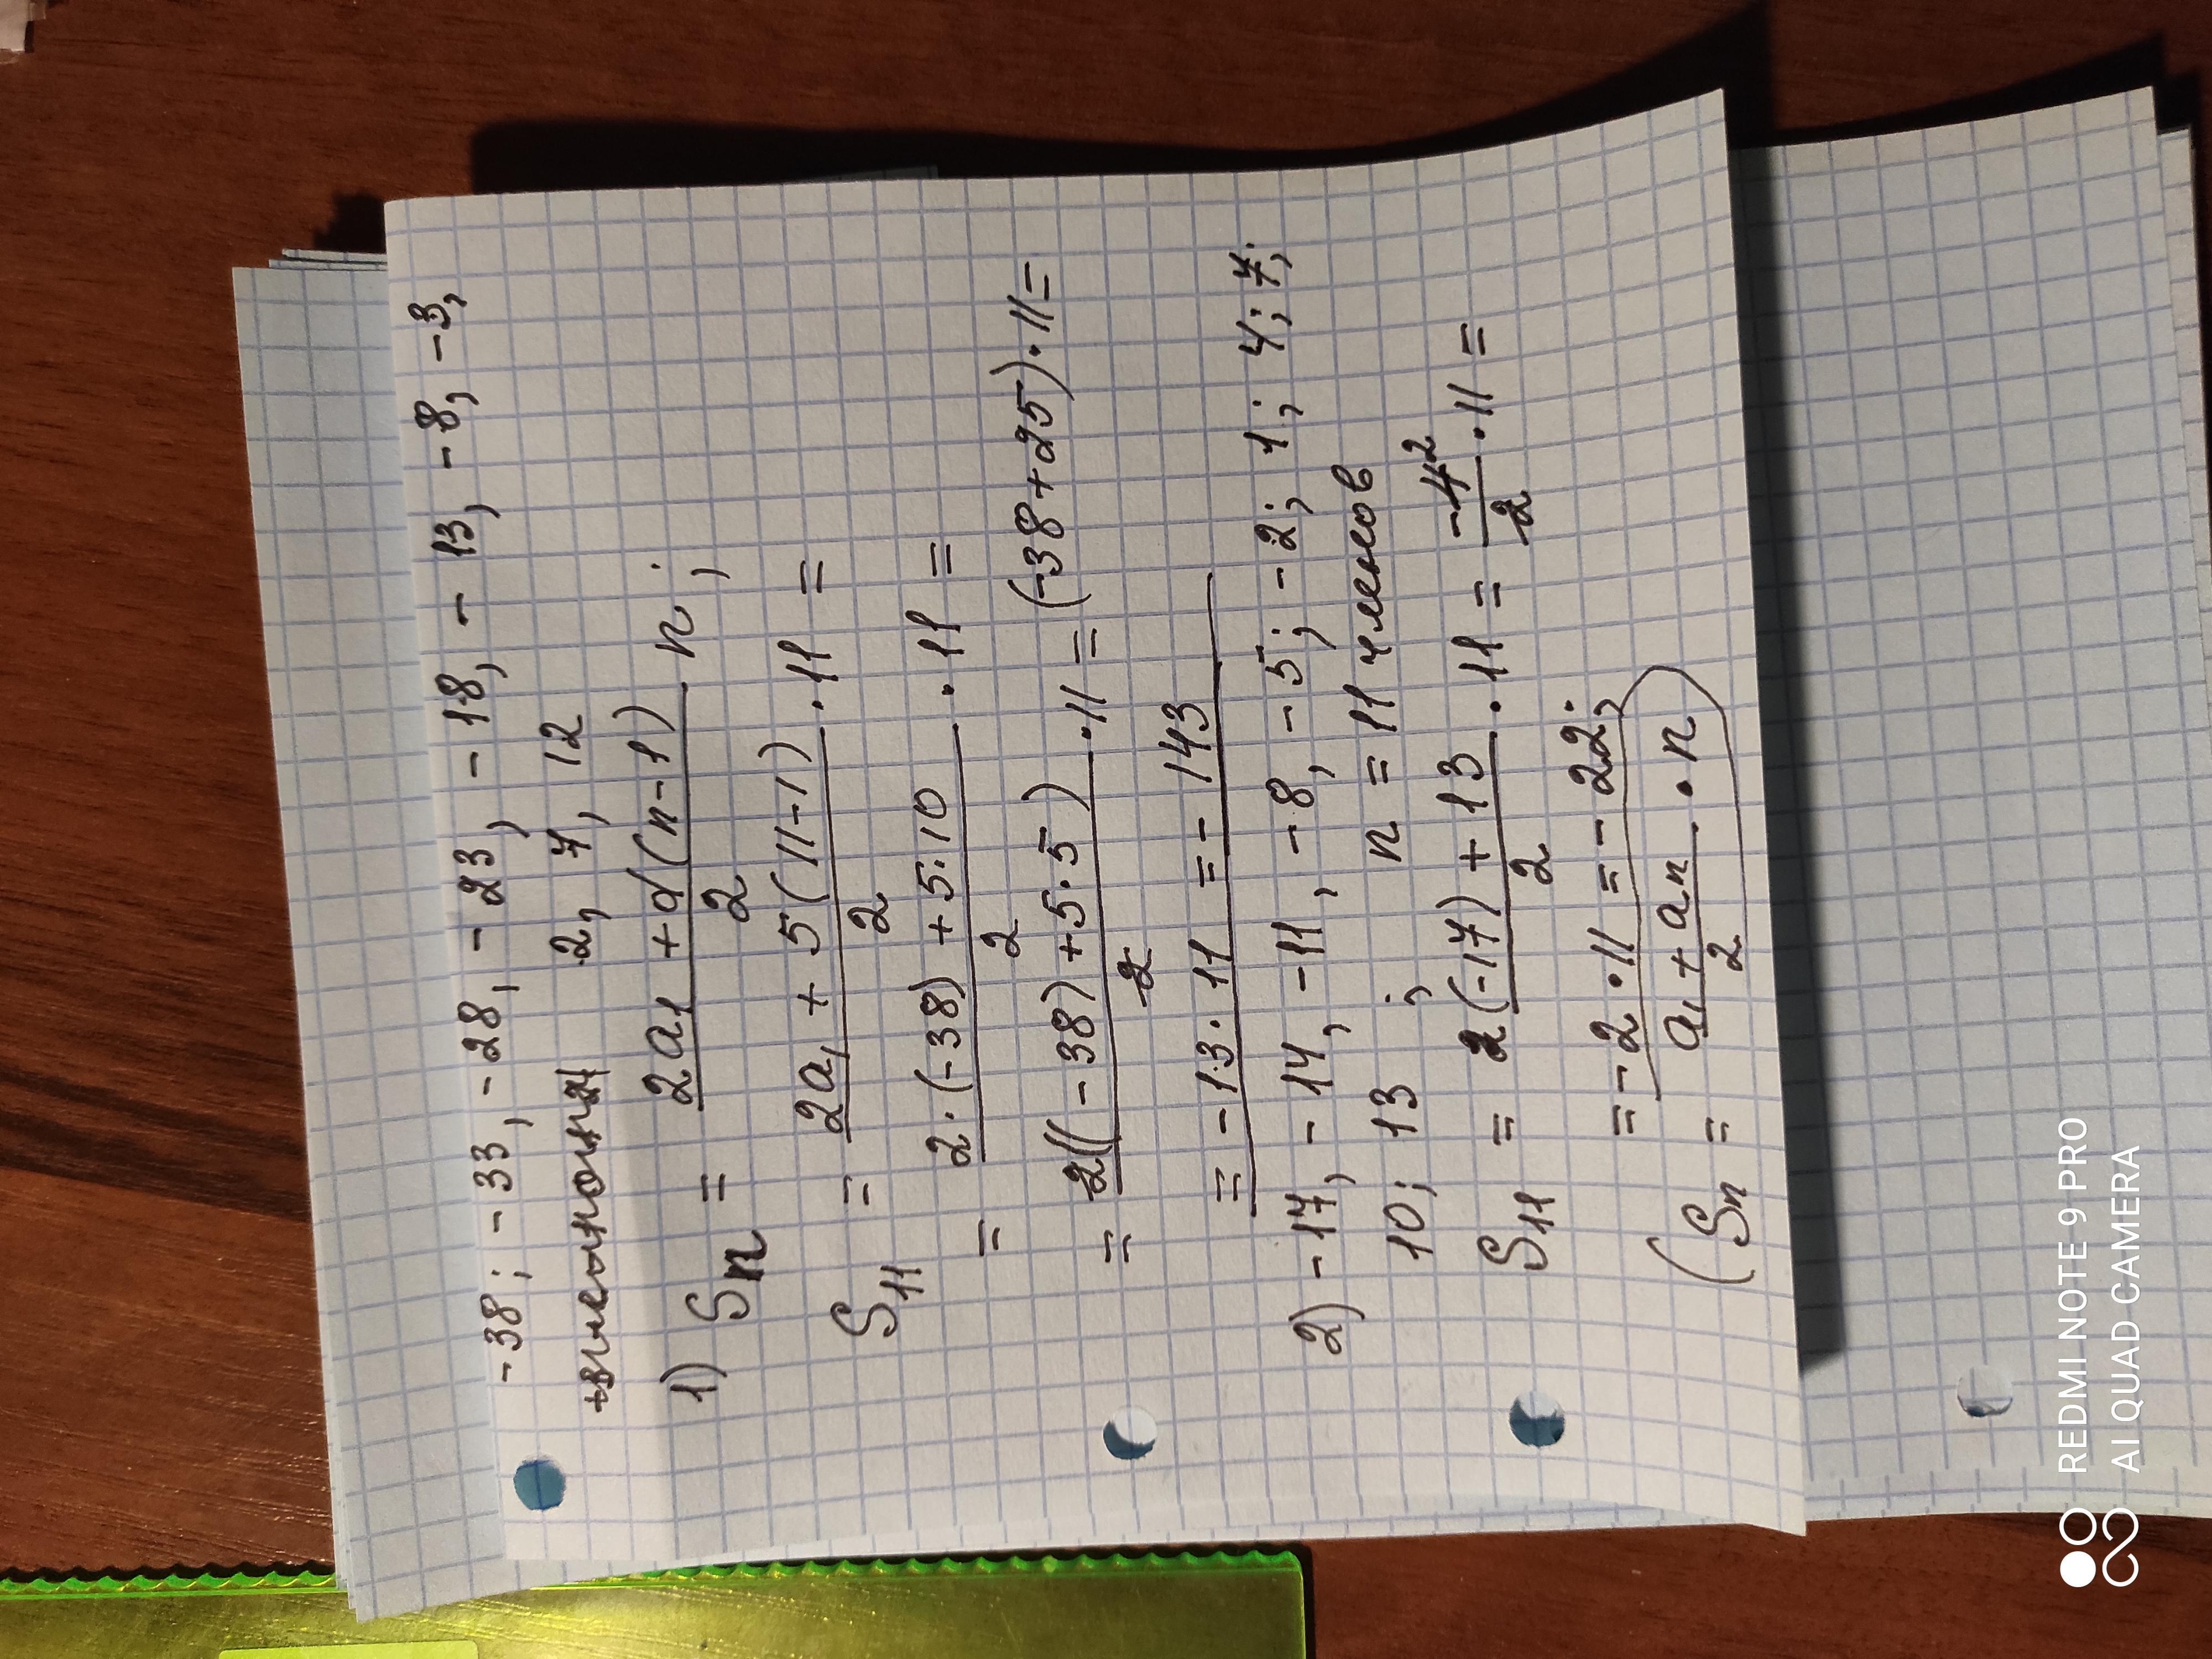 -38; -33, -28, -23, -18, -13, -8, -3,
2, 7, 12
1) Sn = 2a1 + d(n-1) / 2 n;
S11 = 2a1 + 5(11-1) / 2 · 11 =
= 2·(-38) + 5·10 / 2 · 11 =
= 2((-38) + 5·5) / 2 · 11 = (-38+25)·11 =
= -13·11 = -143
2) -17, -14, -11, -8, -5; -2; 1; 4; 7;
10; 13; n = 11 членов
S11 = (-17) + 13 / 2 · 11 = -4² / 2 · 11 =
= -2·11 = -22;
(Sn = a1 + an / 2 · n)
REDMI NOTE 9 PRO
AI QUAD CAMERA